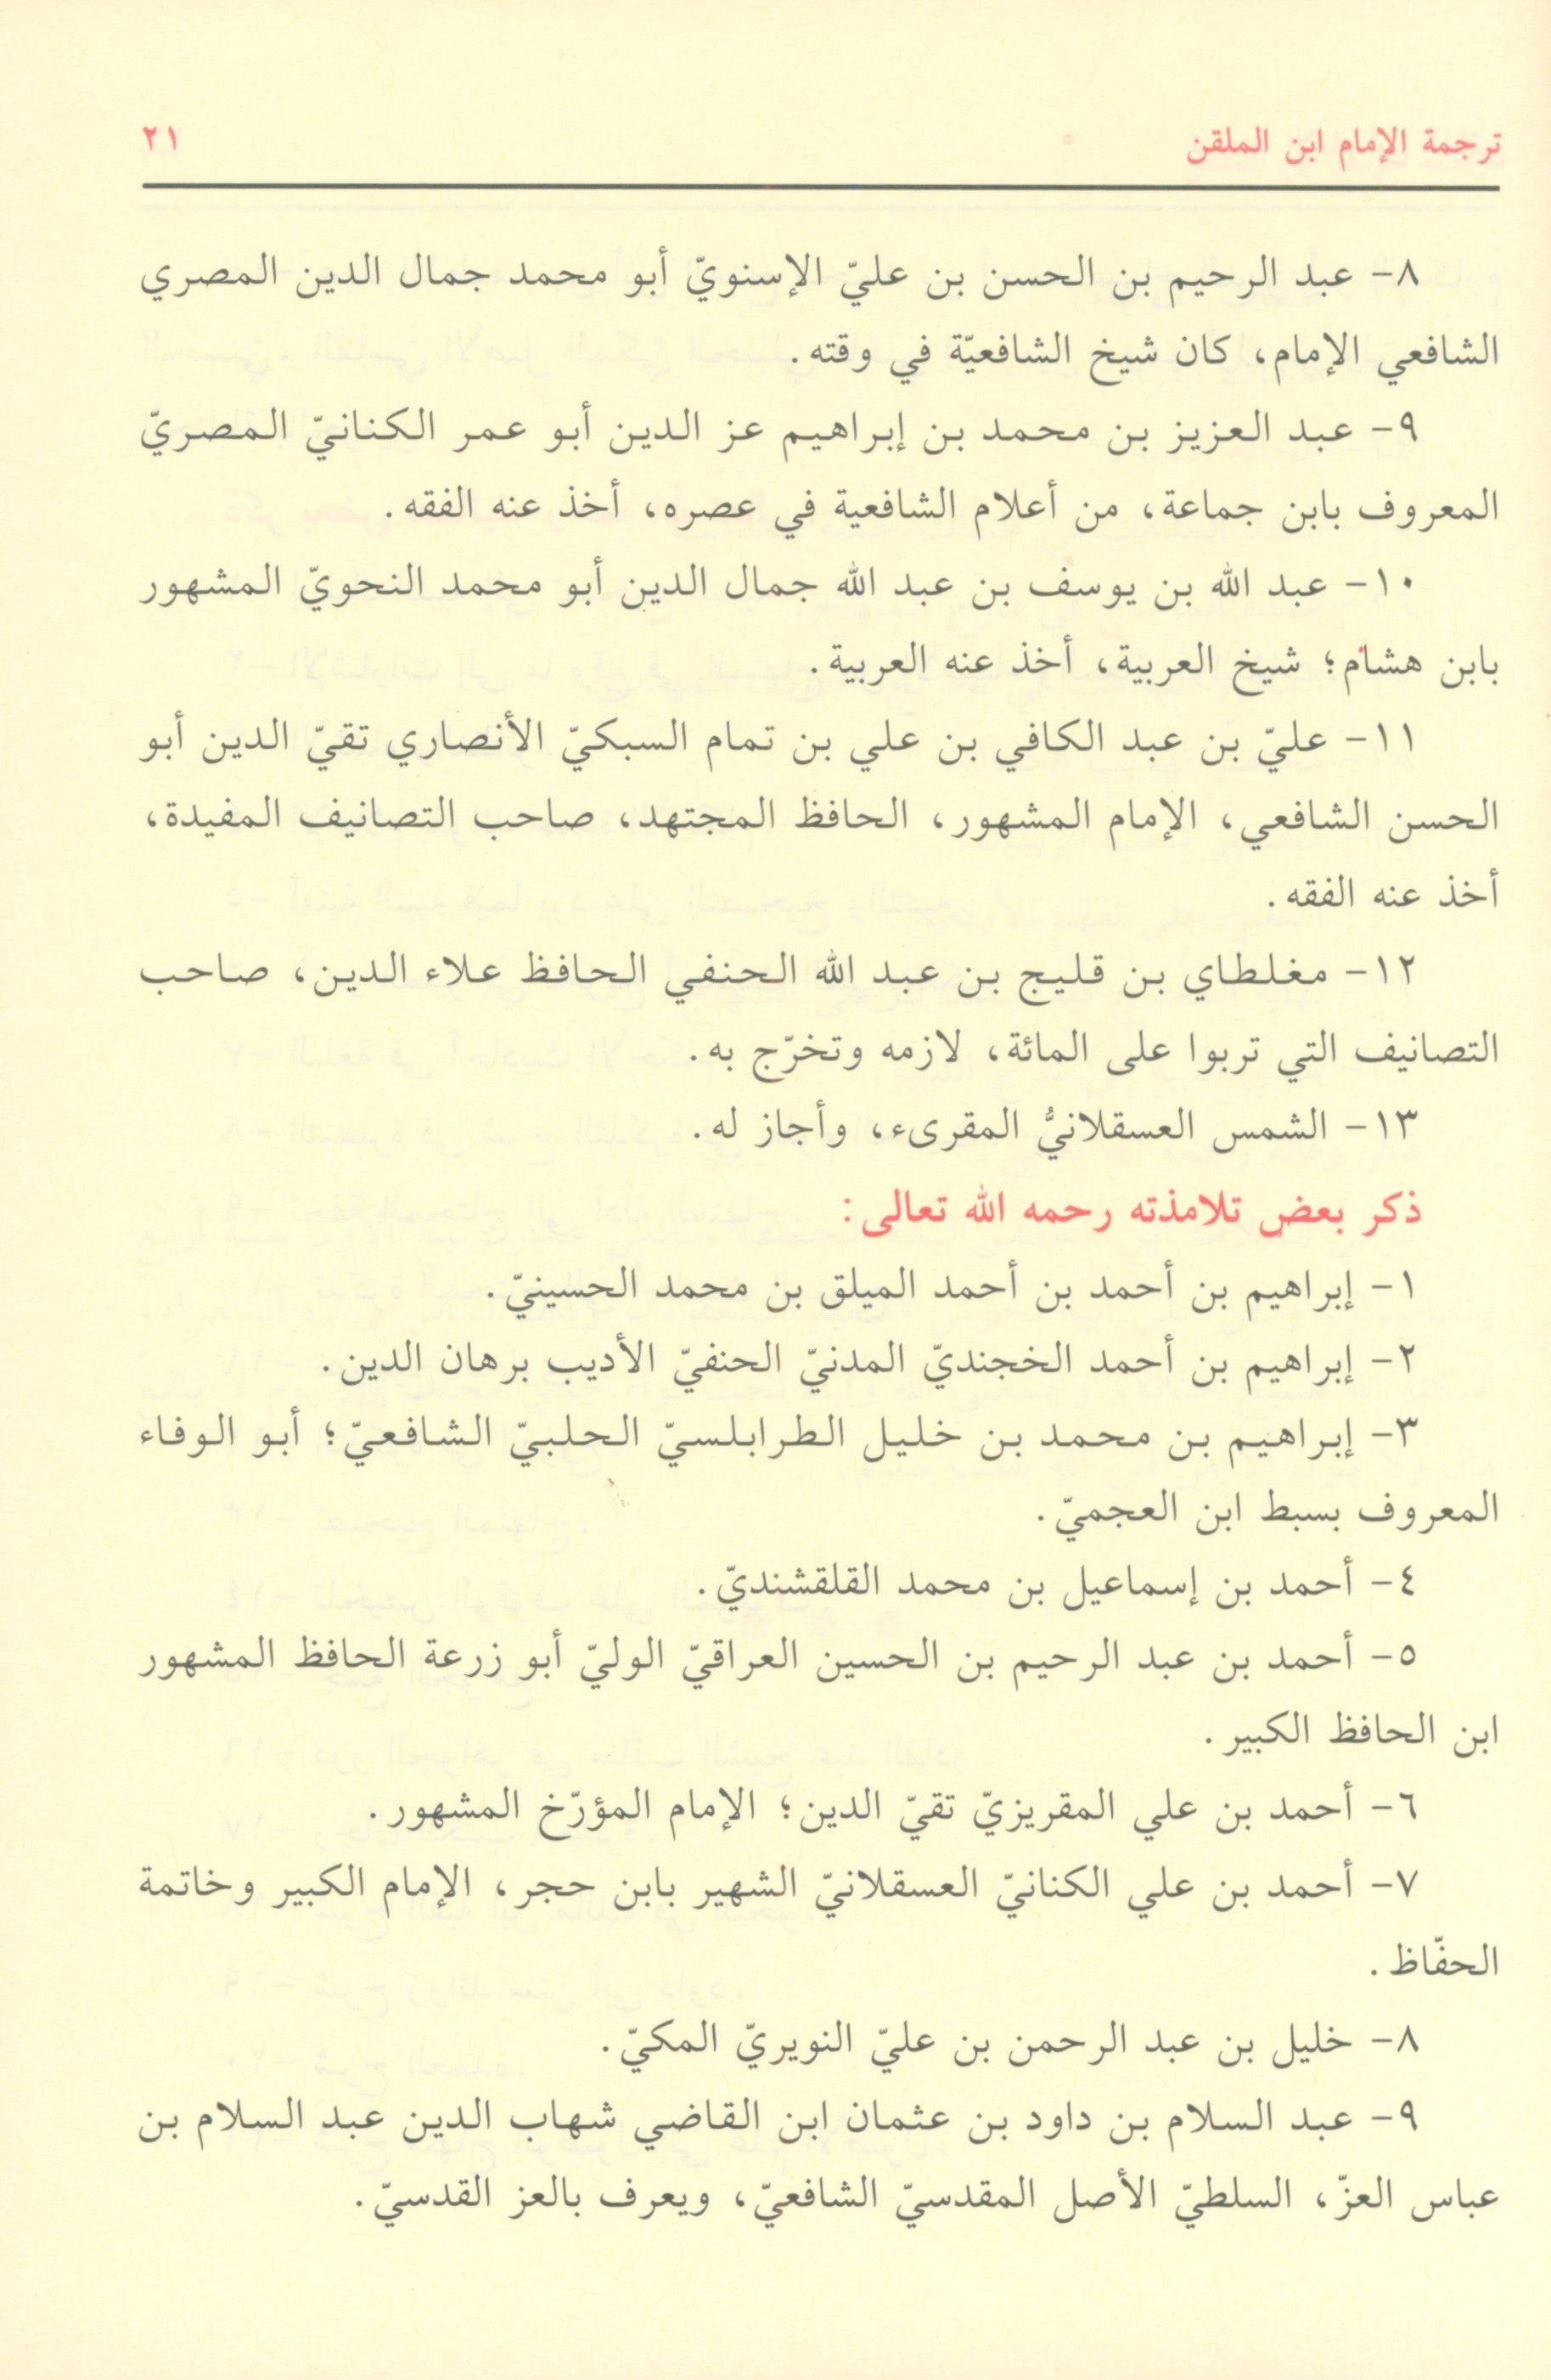 ترجمة الإمام ابن الملقن ٢١
٨- عبد الرحيم بن الحسن بن عليّ الإسنويّ أبو محمد جمال الدين المصري
الشافعي الإمام، كان شيخ الشافعيّة في وقته.
٩- عبد العزيز بن محمد بن إبراهيم عز الدين أبو عمر الكنانيّ المصريّ
المعروف بابن جماعة، من أعلام الشافعية في عصره، أخذ عنه الفقه.
١٠- عبد الله بن يوسف بن عبد الله جمال الدين أبو محمد النحويّ المشهور
بابن هشام؛ شيخ العربية، أخذ عنه العربية.
١١- عليّ بن عبد الكافي بن علي بن تمام السبكيّ الأنصاري تقيّ الدين أبو
الحسن الشافعي، الإمام المشهور، الحافظ المجتهد، صاحب التصانيف المفيدة،
أخذ عنه الفقه.
١٢- مغلطاي بن قليج بن عبد الله الحنفي الحافظ علاء الدين، صاحب
التصانيف التي تربوا على المائة، لازمه وتخرّج به.
١٣- الشمس العسقلانيُّ المقرىء، وأجاز له.
ذكر بعض تلامذته رحمه الله تعالى:
١- إبراهيم بن أحمد بن أحمد الميلق بن محمد الحسينيّ.
٢- إبراهيم بن أحمد الخجنديّ المدنيّ الحنفيّ الأديب برهان الدين.
٣- إبراهيم بن محمد بن خليل الطرابلسيّ الحلبيّ الشافعيّ؛ أبو الوفاء
المعروف بسبط ابن العجميّ.
٤- أحمد بن إسماعيل بن محمد القلقشنديّ.
٥- أحمد بن عبد الرحيم بن الحسين العراقيّ الوليّ أبو زرعة الحافظ المشهور
ابن الحافظ الكبير.
٦- أحمد بن علي المقريزيّ تقيّ الدين؛ الإمام المؤرّخ المشهور.
٧- أحمد بن علي الكنانيّ العسقلانيّ الشهير بابن حجر، الإمام الكبير وخاتمة
الحفّاظ.
٨- خليل بن عبد الرحمن بن عليّ النويريّ المكيّ.
٩- عبد السلام بن داود بن عثمان ابن القاضي شهاب الدين عبد السلام بن
عباس العزّ، السلطيّ الأصل المقدسيّ الشافعيّ، ويعرف بالعز القدسيّ.